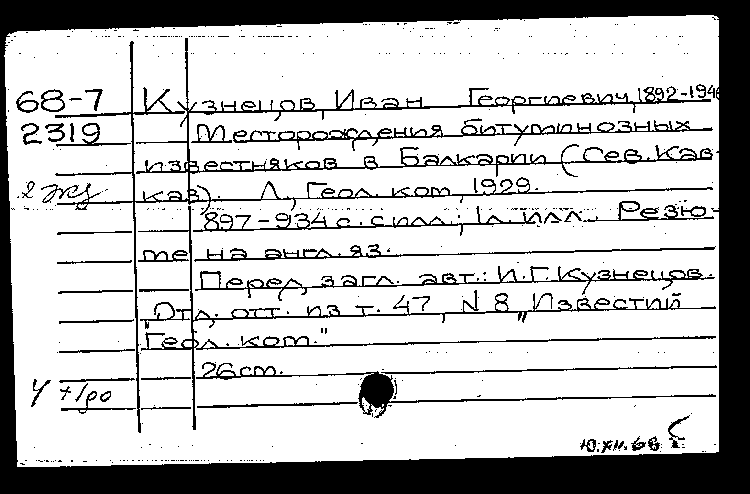 68-7 Кузнецов, Иван Георгиевич, 1892-1946
2319 Месторождения битуминозных
известняков в Балкарии (Сев. Кав-
каз). Л., Геол. ком, 1929.
897-934 с. с илл.; 1 л. илл. Резю-
ме на англ. яз.
Перед загл. авт.: И.Г. Кузнецов.
Отд. отт. из т. 47, N 8 „Известий
Геол. ком."
26 см.